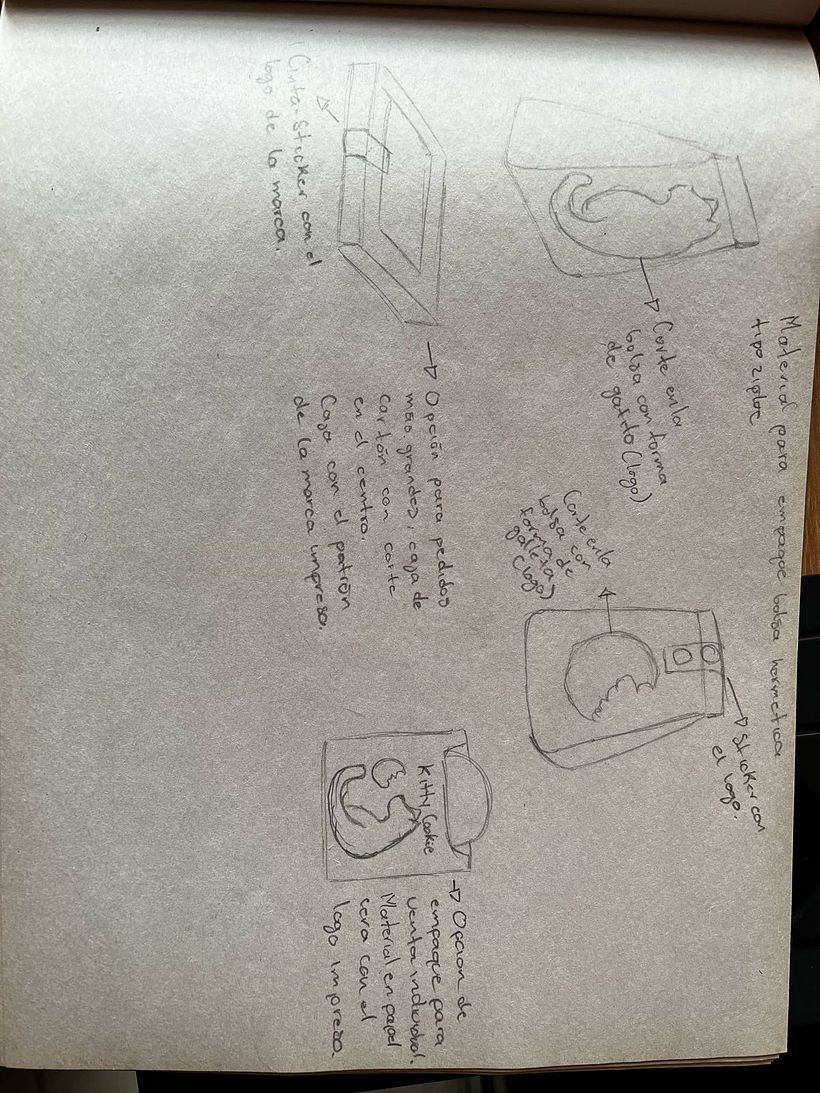 Material para empaque bolsa hermetica
tipo ziploc
Corte en la
bolsa con forma
de gatito (logo)
Corte en la
bolsa con
forma de
galleta
(logo)
Sticker con
el logo.
Cinta-Sticker con el
logo de la marca.
Opción para pedidos
mas grandes, caja de
cartón con corte
en el centro.
Caja con el patrón
de la marca impreso.
Kitty Cookie
Opcion de
empaque para
venta individual.
Material en papel
cera con el
logo impreso.